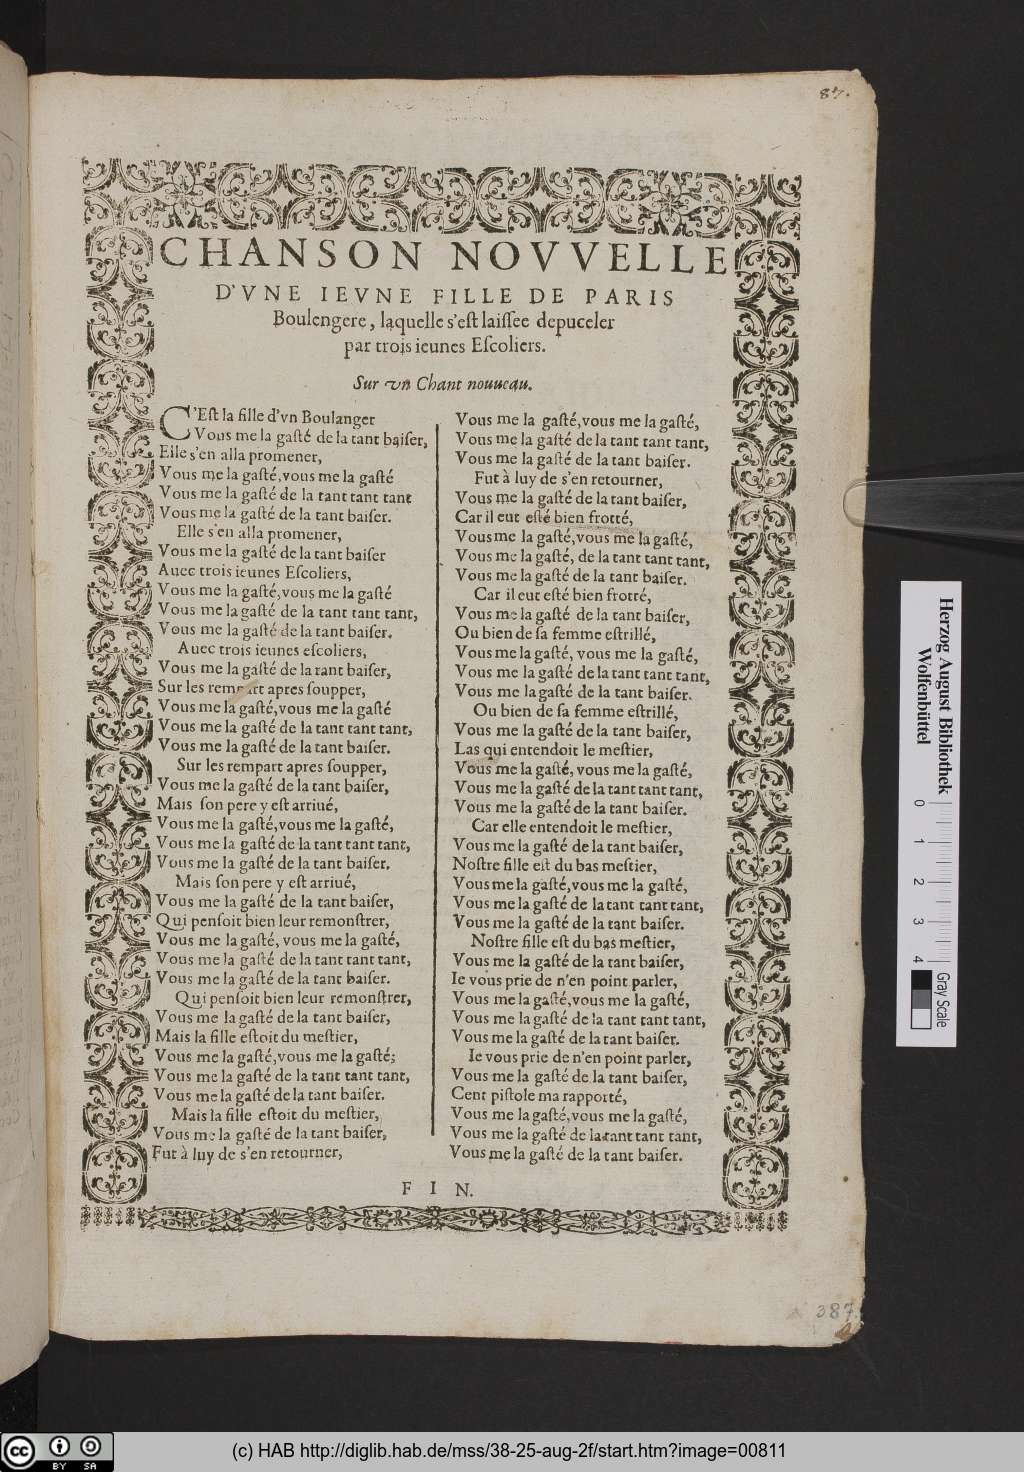 87.
CHANSON NOVVELLE
D'VNE IEVNE FILLE DE PARIS
Boulengere, laquelle s'eſt laiſſee depuceler
par trois ieunes Eſcoliers.
Sur vn Chant nouueau.
C'Eſt la fille d'vn Boulanger
Vous me la gaſté de la tant baiſer,
Elle s'en alla promener,
Vous me la gaſté,vous me la gaſté
Vous me la gaſté de la tant tant tant
Vous me la gaſté de la tant baiſer.
Elle s'en alla promener,
Vous me la gaſté de la tant baiſer
Auec trois ieunes Eſcoliers,
Vous me la gaſté,vous me la gaſté
Vous me la gaſté de la tant tant tant,
Vous me la gaſté de la tant baiſer.
Auec trois ieunes eſcoliers,
Vous me la gaſté de la tant baiſer,
Sur les rempart apres ſoupper,
Vous me la gaſté,vous me la gaſté
Vous me la gaſté de la tant tant tant,
Vous me la gaſté de la tant baiſer.
Sur les rempart apres ſoupper,
Vous me la gaſté de la tant baiſer,
Mais ſon pere y eſt arriué,
Vous me la gaſté,vous me la gaſté,
Vous me la gaſté de la tant tant tant,
Vous me la gaſté de la tant baiſer.
Mais ſon pere y eſt arriué,
Vous me la gaſté de la tant baiſer,
Qui penſoit bien leur remonſtrer,
Vous me la gaſté, vous me la gaſté,
Vous me la gaſté de la tant tant tant,
Vous me la gaſté de la tant baiſer.
Qui penſoit bien leur remonſtrer,
Vous me la gaſté de la tant baiſer,
Mais la fille eſtoit du meſtier,
Vous me la gaſté,vous me la gaſté;
Vous me la gaſté de la tant tant tant,
Vous me la gaſté de la tant baiſer.
Mais la fille eſtoit du meſtier,
Vous me la gaſté de la tant baiſer,
Fut à luy de s'en retourner,
Vous me la gaſté,vous me la gaſté,
Vous me la gaſté de la tant tant tant,
Vous me la gaſté de la tant baiſer.
Fut à luy de s'en retourner,
Vous me la gaſté de la tant baiſer,
Car il eut eſté bien frotté,
Vous me la gaſté,vous me la gaſté,
Vous me la gaſté, de la tant tant tant,
Vous me la gaſté de la tant baiſer.
Car il eut eſté bien frotté,
Vous me la gaſté de la tant baiſer,
Ou bien de ſa femme eſtrillé,
Vous me la gaſté, vous me la gaſté,
Vous me la gaſté de la tant tant tant,
Vous me la gaſté de la tant baiſer.
Ou bien de ſa femme eſtrillé,
Vous me la gaſté de la tant baiſer,
Las qui entendoit le meſtier,
Vous me la gaſté, vous me la gaſté,
Vous me la gaſté de la tant tant tant,
Vous me la gaſté de la tant baiſer.
Car elle entendoit le meſtier,
Vous me la gaſté de la tant baiſer,
Noſtre fille eſt du bas meſtier,
Vous me la gaſté,vous me la gaſté,
Vous me la gaſté de la tant tant tant,
Vous me la gaſté de la tant baiſer.
Noſtre fille eſt du bas meſtier,
Vous me la gaſté de la tant baiſer,
Ie vous prie de n'en point parler,
Vous me la gaſté,vous me la gaſté,
Vous me la gaſté de la tant tant tant,
Vous me la gaſté de la tant baiſer.
Ie vous prie de n'en point parler,
Vous me la gaſté de la tant baiſer,
Cent piſtole ma rapporté,
Vous me la gaſté,vous me la gaſté,
Vous me la gaſté de la tant tant tant,
Vous me la gaſté de la tant baiſer.
FIN.
387
Herzog August Bibliothek
Wolfenbüttel
0 1 2 3 4
Gray Scale
cc BY SA
(c) HAB http://diglib.hab.de/mss/38-25-aug-2f/start.htm?image=00811